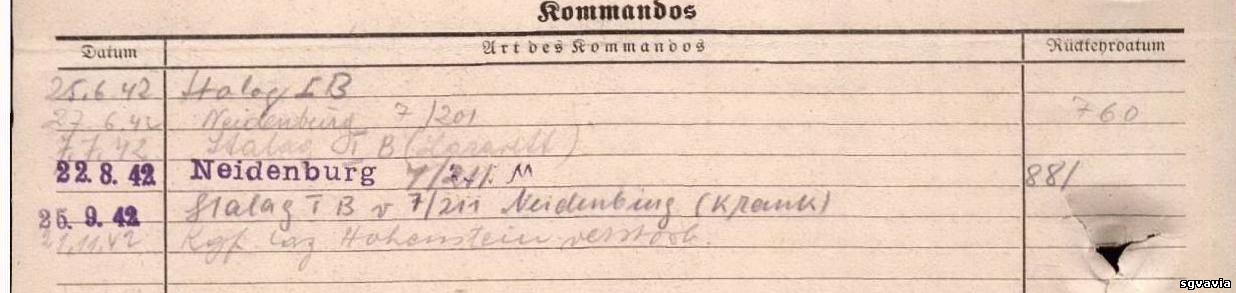 Kommandos
Datum Art des Kommandos Rückkehrdatum
25.6.42 Stalag I B
27.6.42 Neidenburg 7/201 760
7.7.42 Stalag I B (Lazarett)
22.8.42 Neidenburg 881
25.9.42 Stalag I B v 7/211 Neidenburg (krank)
21.11.42 Kgf. Laz Hohenstein verstorb.
sgvavia